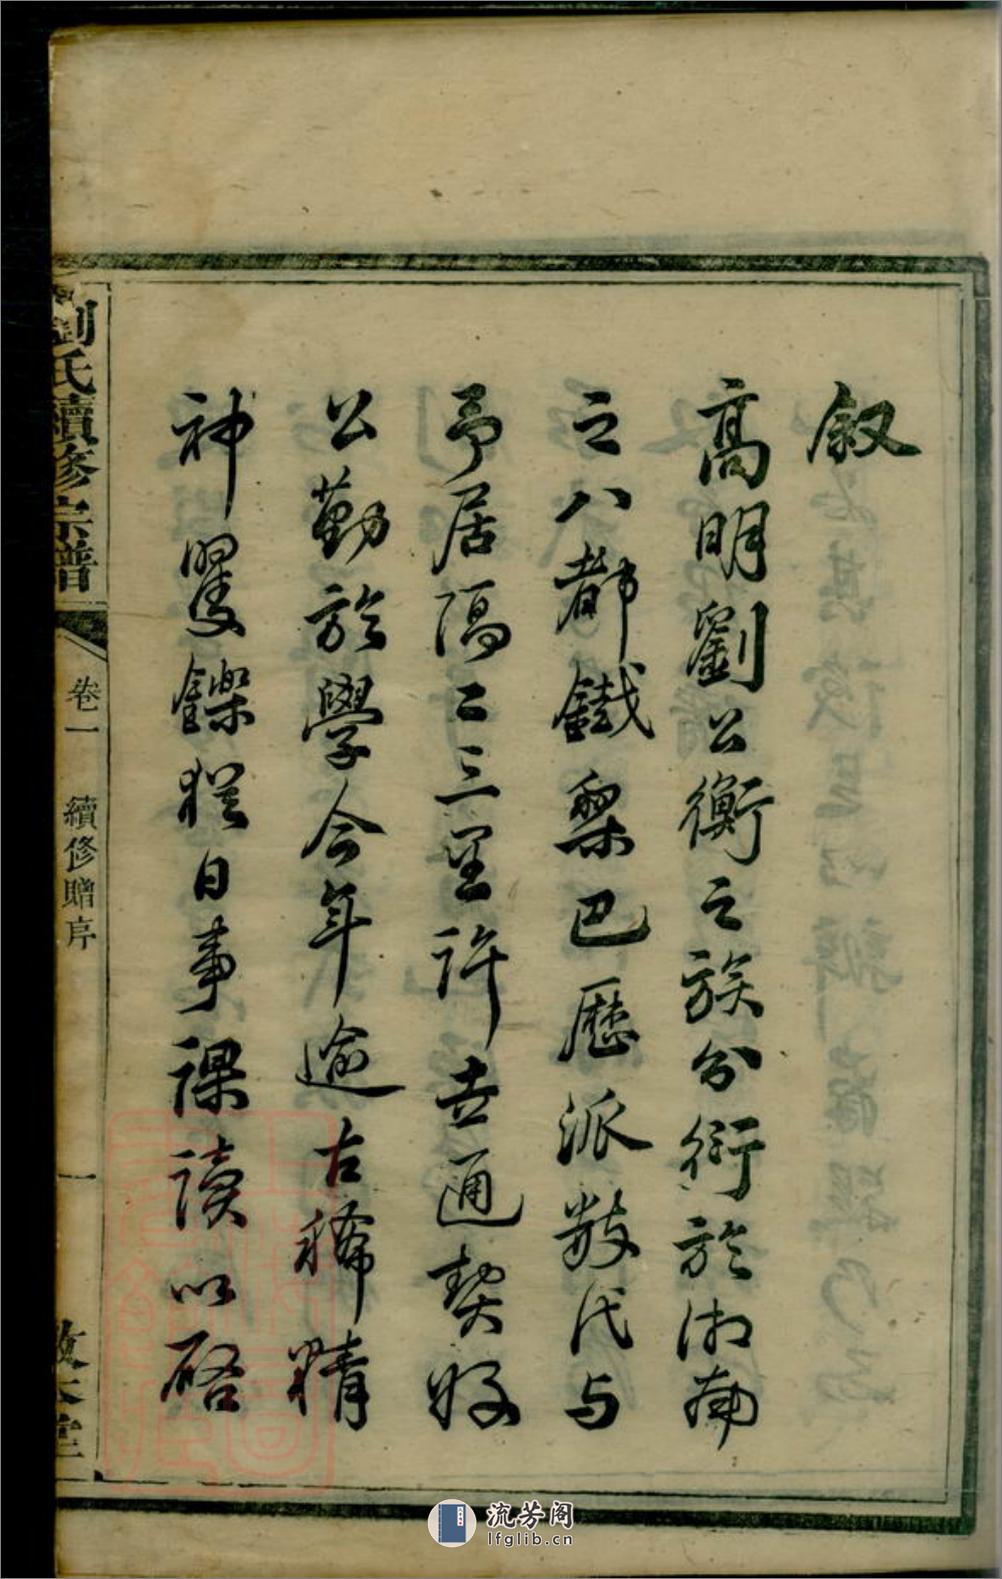 叙
高明劉公衡之族分衍於湘南
之八都鐵梨巴歷派数代与
予居隔二三里許世通契好
公勤於學今年逾古稀精
神矍鑠猶日事課讀以啓
劉氏續修宗譜
卷一
續修贈序
一
敦本堂
流芳阁
lfglib.cn